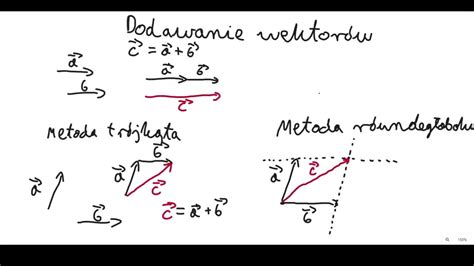 Dodawanie wektorów
c⃗ = a⃗ + b⃗
a⃗
b⃗
a⃗ b⃗
c⃗
Metoda trójkąta
a⃗
b⃗
a⃗ b⃗ c⃗
c⃗ = a⃗ + b⃗
Metoda równoległoboku
a⃗ c⃗
b⃗